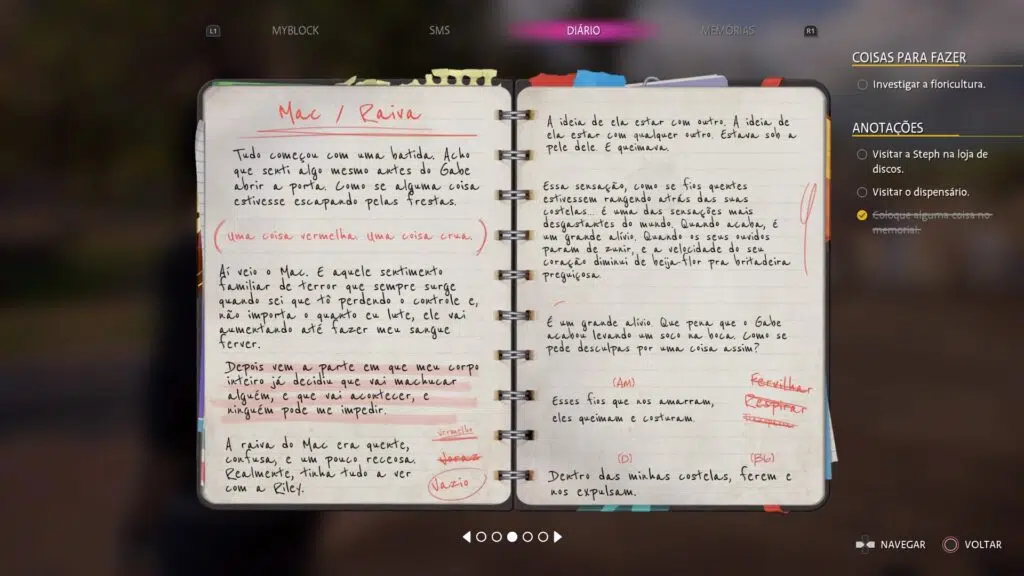 L1
MYBLOCK
SMS
DIÁRIO
MEMÓRIAS
R1
Mac / Raiva
Tudo começou com uma batida. Acho
que senti algo mesmo antes do Gabe
abrir a porta. Como se alguma coisa
estivesse escapando pelas frestas.
(uma coisa vermelha. Uma coisa crua.)
Aí veio o Mac. E aquele sentimento
familiar de terror que sempre surge
quando sei que tô perdendo o controle e,
não importa o quanto eu lute, ele vai
aumentando até fazer meu sangue
ferver.
Depois vem a parte em que meu corpo
inteiro já decidiu que vai machucar
alguém, e que vai acontecer, e
ninguém pode me impedir.
A raiva do Mac era quente,
confusa, e um pouco receosa.
Realmente, tinha tudo a ver
com a Riley.
vermelha
Voraz
Vazio
A ideia de ela estar com outro. A ideia de
ela estar com qualquer outro. Estava sob a
pele dele. E queimava.
Essa sensação, como se fios quentes
estivessem rangendo atrás das suas
costelas... é uma das sensações mais
desgastantes do mundo. Quando acaba, é
um grande alívio. Quando os seus ouvidos
param de zunir, e a velocidade do seu
coração diminui de beija-flor pra britadeira
preguiçosa.
É um grande alívio. Que pena que o Gabe
acabou levando um soco na boca. Como se
pede desculpas por uma coisa assim?
(AM)
Esses fios que nos amarram,
eles queimam e costuram.
Fervilhar
Respirar
(D)
(Bb)
Dentro das minhas costelas, ferem e
nos expulsam.
COISAS PARA FAZER
Investigar a floricultura.
ANOTAÇÕES
Visitar a Steph na loja de
discos.
Visitar o dispensário.
Coloque alguma coisa no
memorial.
NAVEGAR
VOLTAR